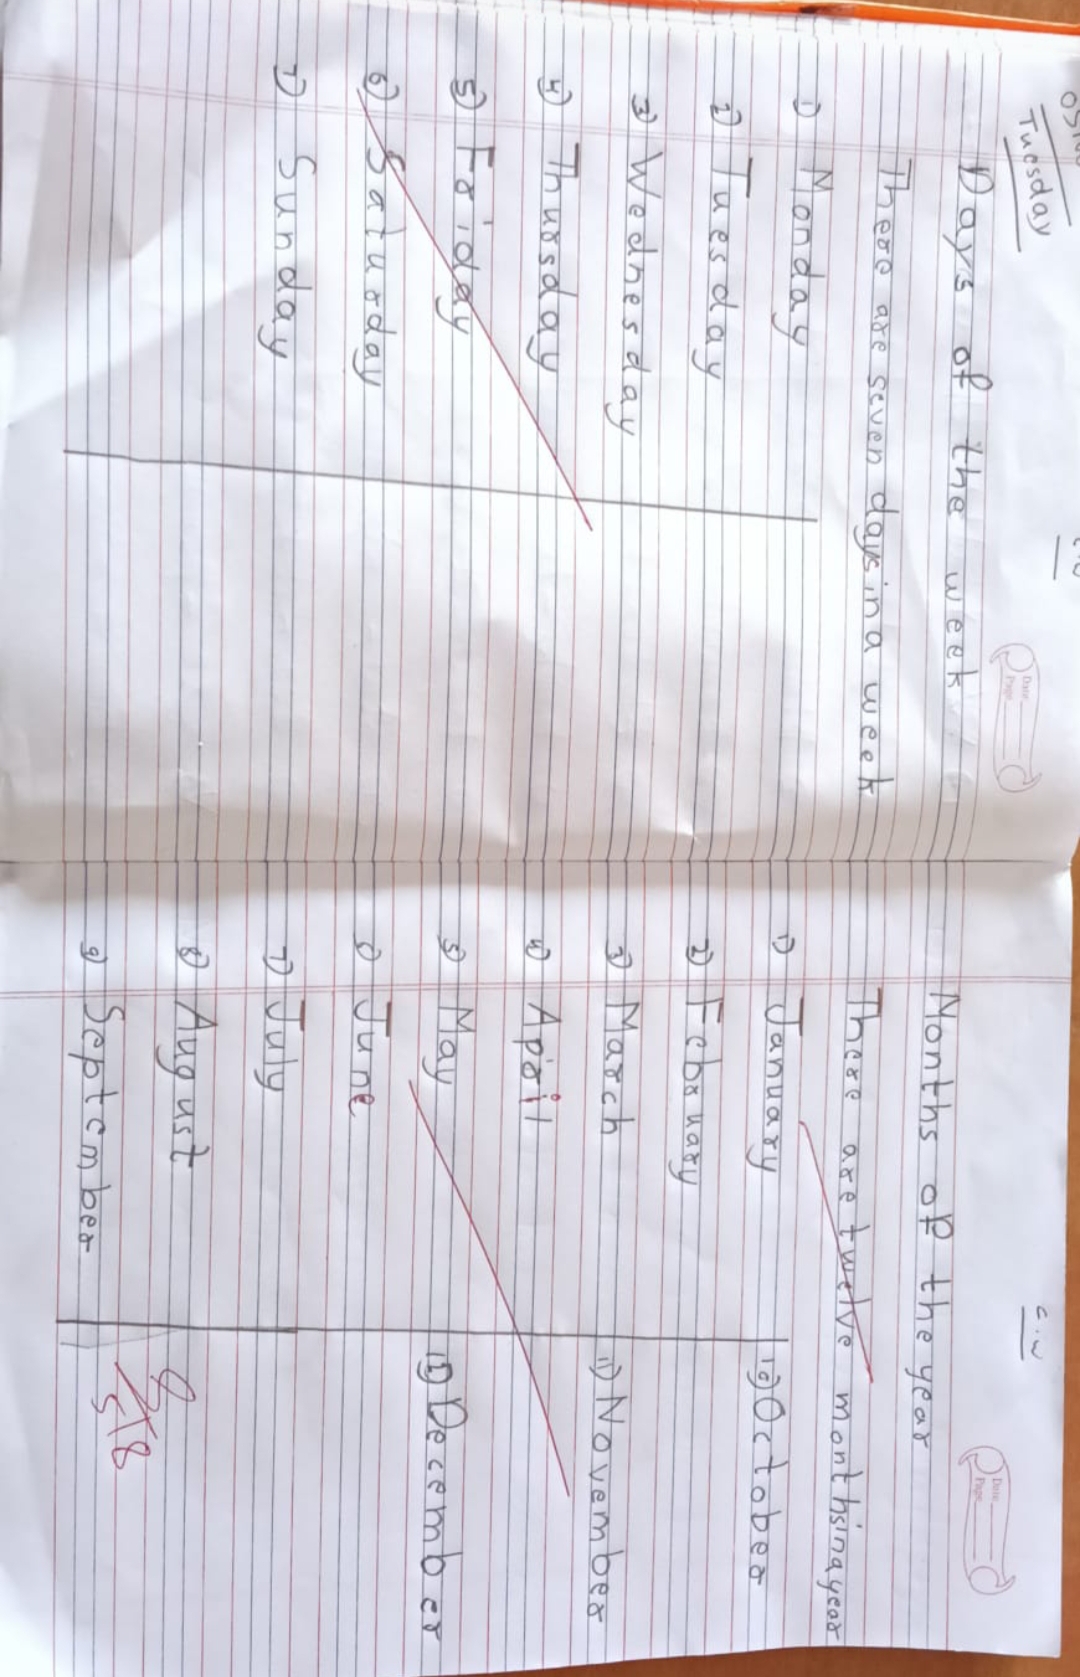 Tuesday
Days of the week
There are seven days in a week
1) Monday
2) Tuesday
3) Wednesday
4) Thursday
5) Friday
6) Saturday
7) Sunday
Date
Page
c.w
Months of the year
There are twelve months in a year
1) January
2) February
3) March
4) April
5) May
6) June
7) July
8) August
9) September
10) October
11) November
12) December
Date
Page